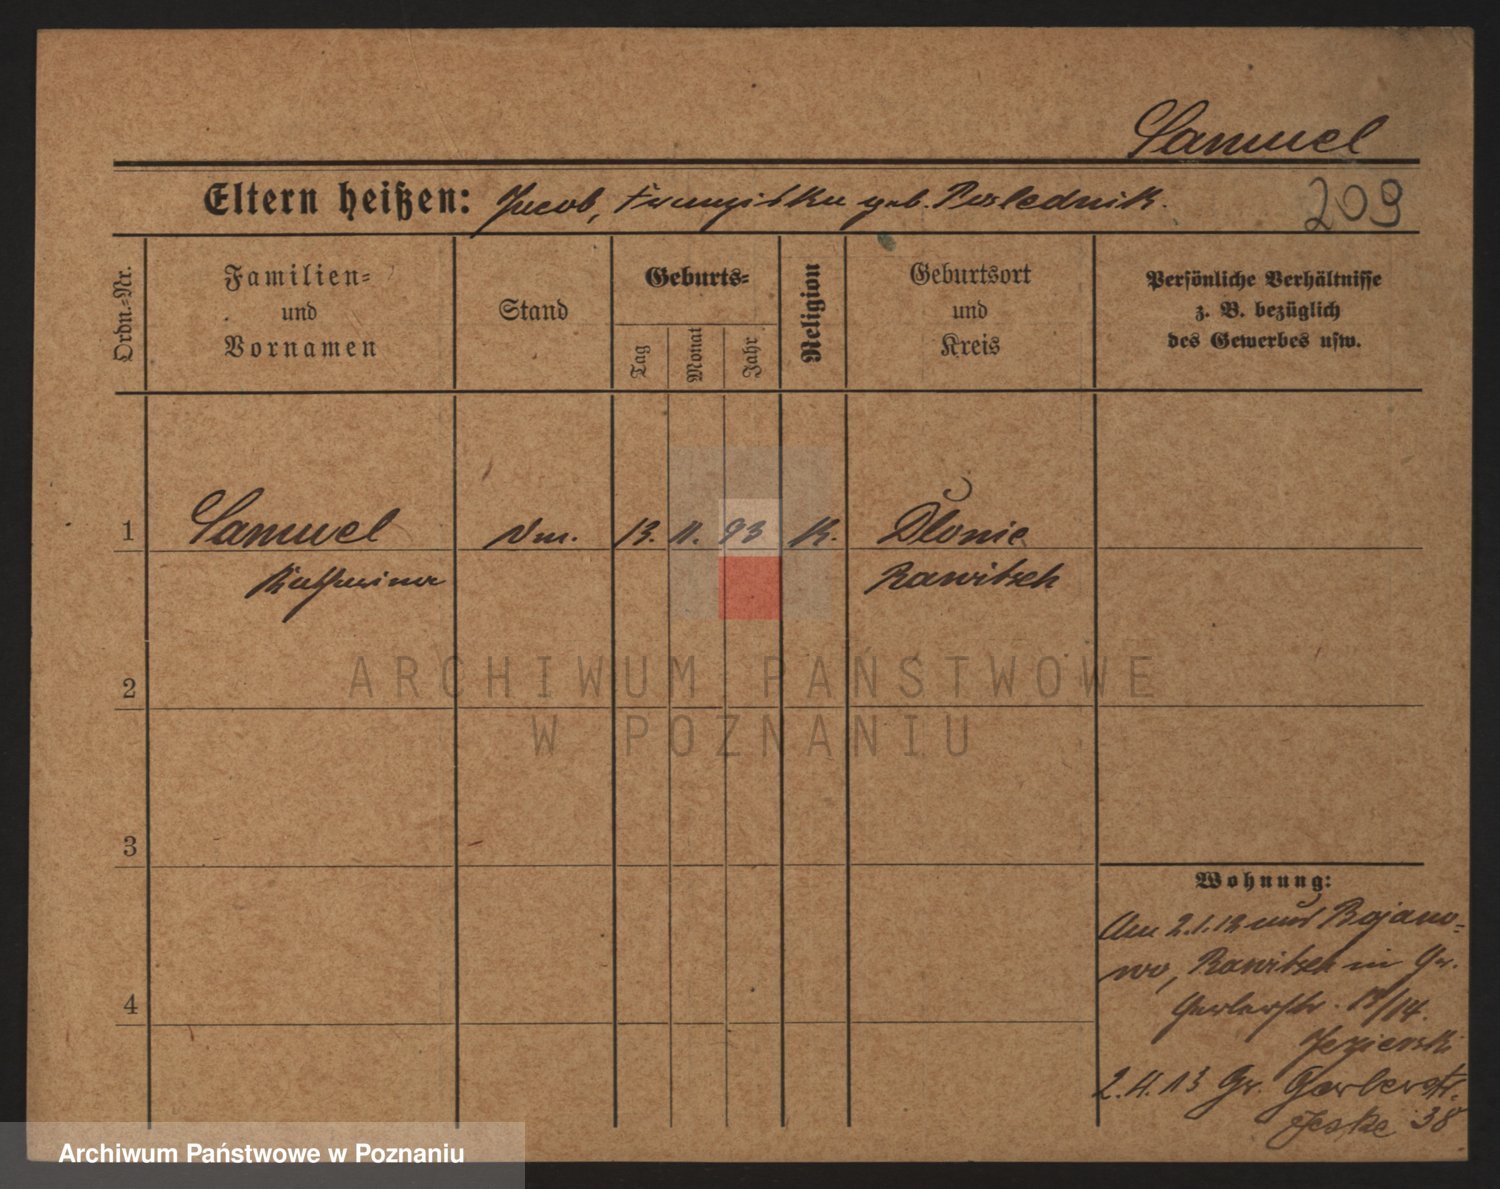 Samuel
Eltern heißen: Jacob, Franziska geb. Poslednik.
209
Ordn.-Nr.
Familien-
und
Vornamen
Stand
Geburts-
Tag
Monat
Jahr
Religion
Geburtsort
und
Kreis
Persönliche Verhältnisse
z. B. bezüglich
des Gewerbes usw.
1
Samuel
Katharina
13. 11. 93
K.
Dlonie
Rawitsch
2
3
4
ARCHIWUM PAŃSTWOWE
W POZNANIU
Wohnung:
Am 2.1.12 aus Bojano-
wo, Rawitsch in Gr.
Gerberstr. 13/14.
Jezierski
2.4.13 Gr. Gerberstr.
Jeske 38
Archiwum Państwowe w Poznaniu